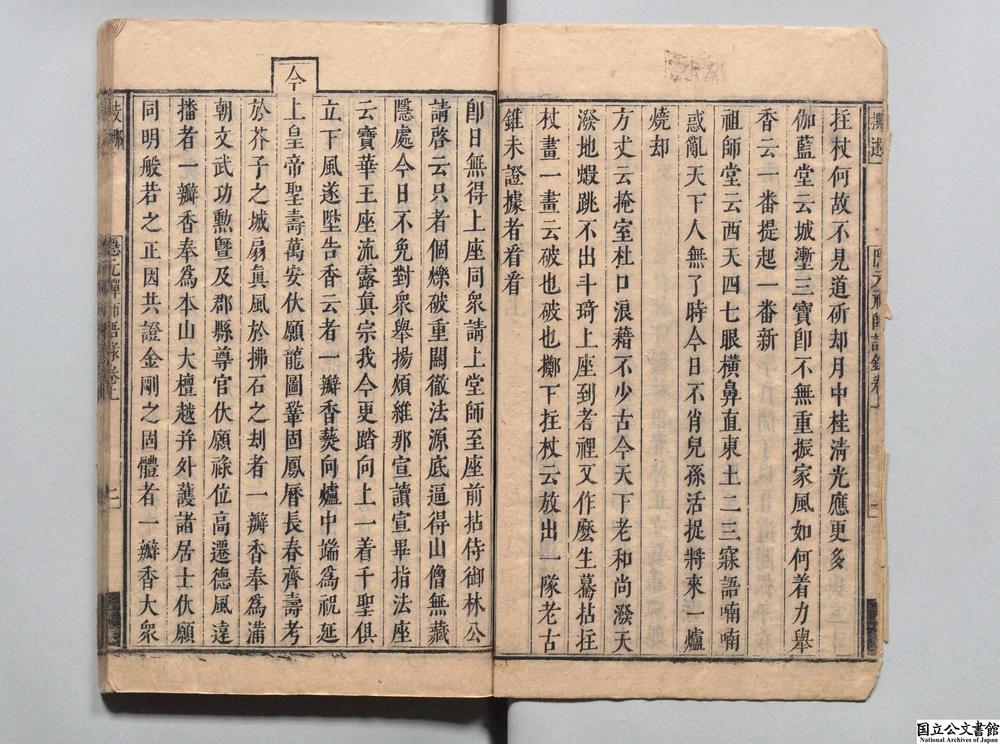 拄杖何故不見道斫却月中桂清光應更多
伽藍堂云城塹三寶卽不無重振家風如何着力舉
香云一番提起一番新
祖師堂云西天四七眼橫鼻直東土二三寐語喃喃
惑亂天下人無了時今日不肖兒孫活捉將來一爐
燒却
方丈云掩室杜口浪藉不少古今天下老和尚潑天
潑地蝦跳不出斗琦上座到者裡又作麼生驀拈拄
杖畫一畫云破也破也擲下拄杖云放出一隊老古
錐未證據者看看
卽日無得上座同衆請上堂師至座前拈侍御林公
請啓云只者個爍破重關徹法源底逼得山僧無藏
隱處今日不免對衆舉揚煩維那宣讀宣畢指法座
云寶華王座流露眞宗我今更踏向上一着千聖俱
立下風遂陞告香云者一瓣香爇向爐中端爲祝延
今
上皇帝聖壽萬安伏願龍圖鞏固鳳曆長春齊壽考
於芥子之城扇眞風於拂石之刧者一瓣香奉爲滿
朝文武功勳曁及郡縣尊官伏願祿位高遷德風遠
播者一瓣香奉爲本山大檀越并外護諸居士伏願
同明般若之正因共證金剛之固體者一瓣香大衆
國立公文書館
National Archives of Japan